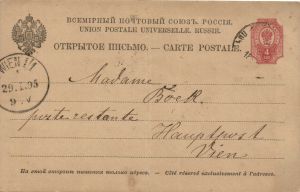 ВСЕМІРНЫЙ ПОЧТОВЫЙ СОЮЗЪ. РОССІЯ.
UNION POSTALE UNIVERSELLE. RUSSIE.
ОТКРЫТОЕ ПИСЬМО. — CARTE POSTALE.
WIEN 1/1
29.1.95
9.V
4
Madame
Boek
poste restante
Hauptpost
Vien
На этой сторонѣ пишется только адресъ. — Côté réservé exclusivement à l'adresse.